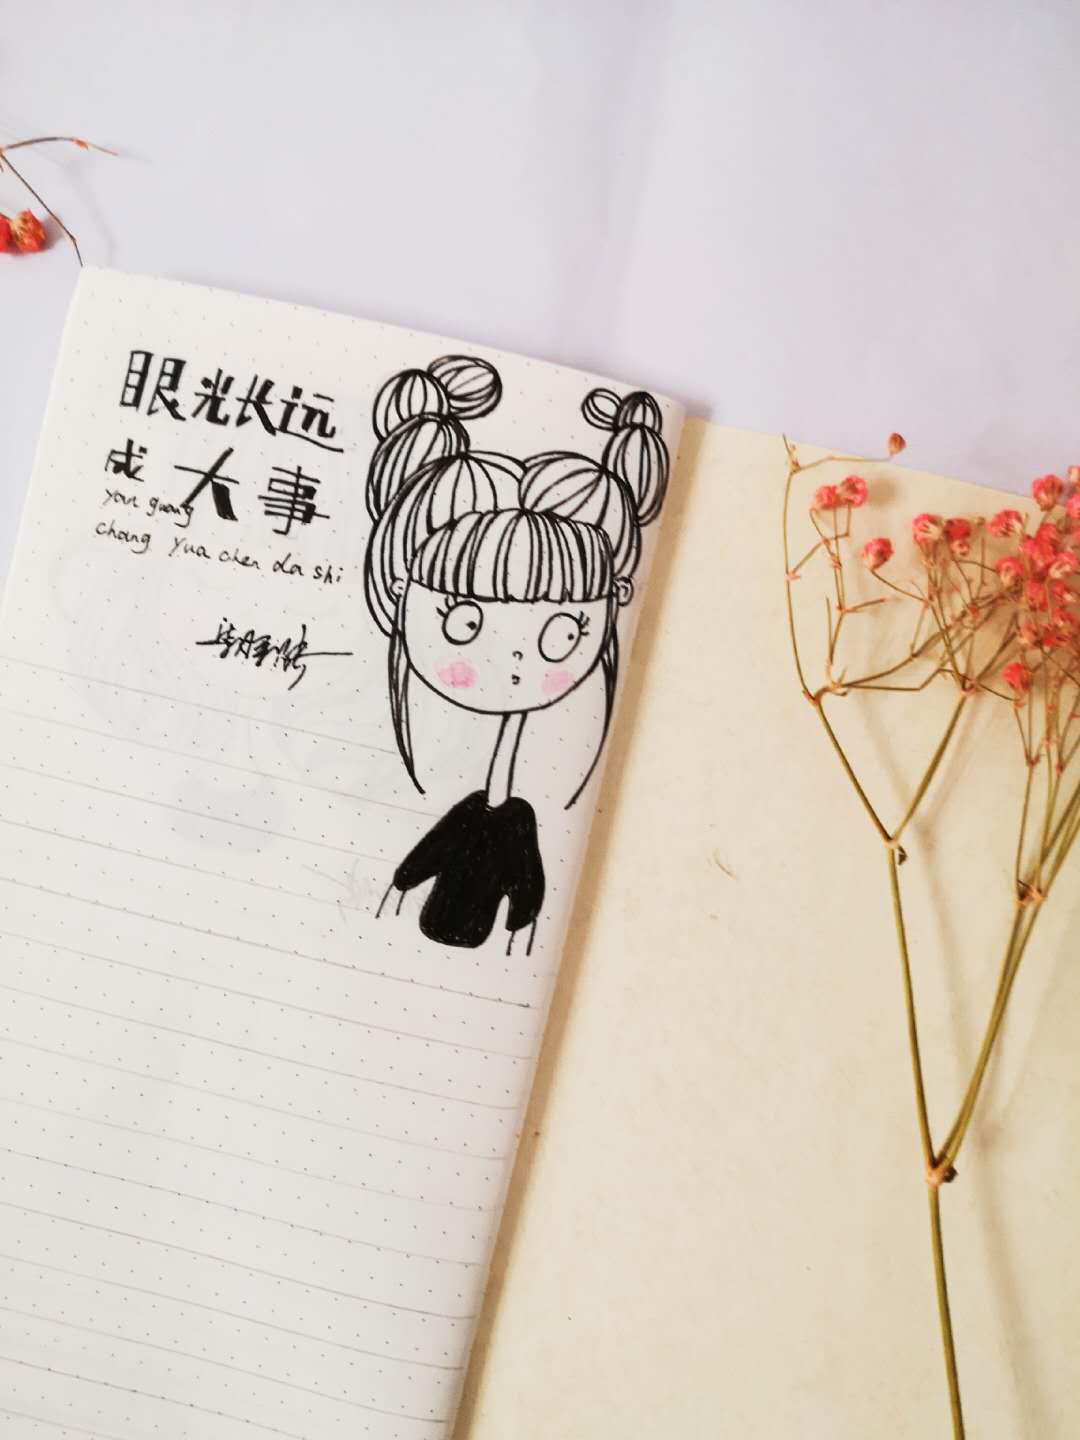 眼光长远
成大事
yan guang
chang yua chen da shi